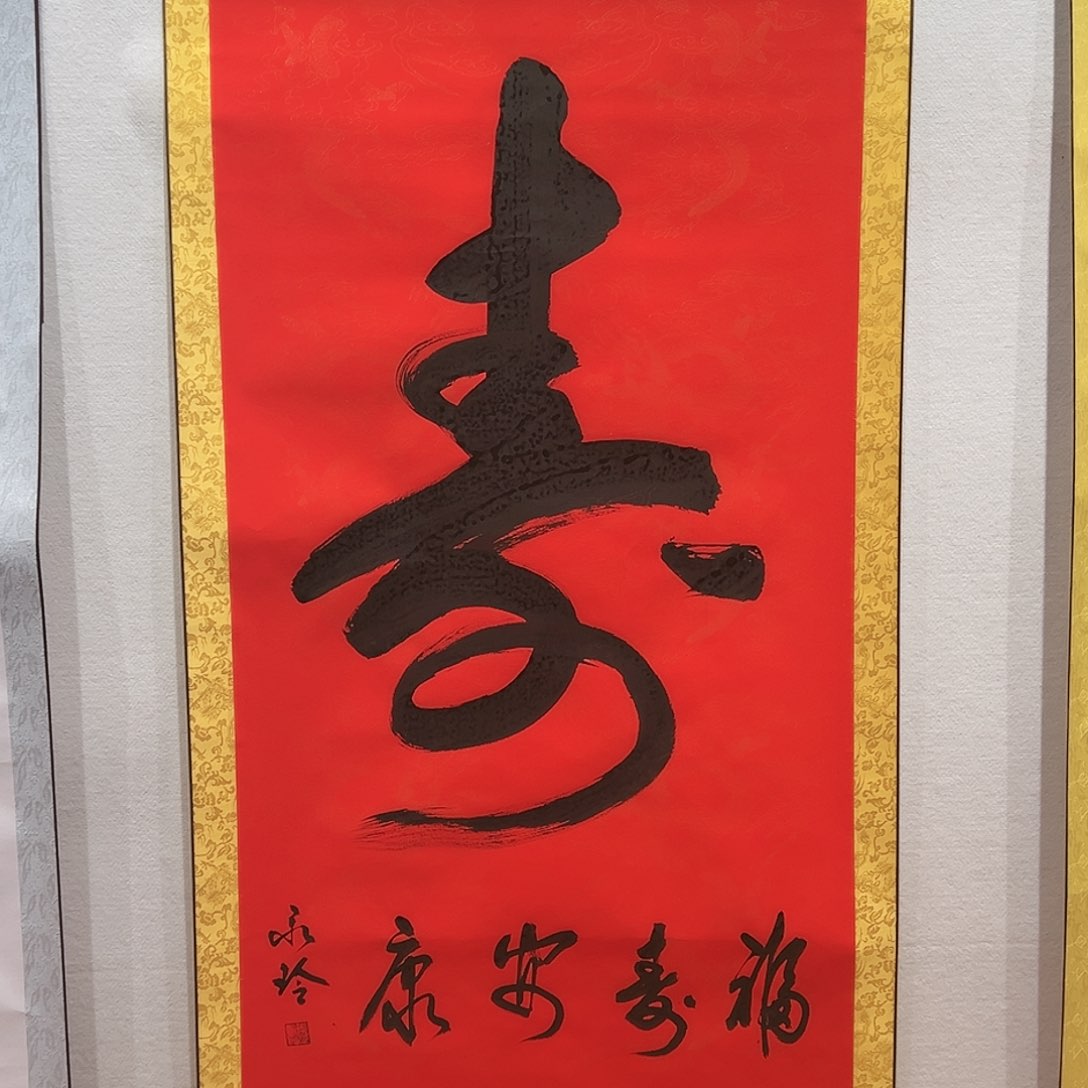 寿
福寿安康
永玲